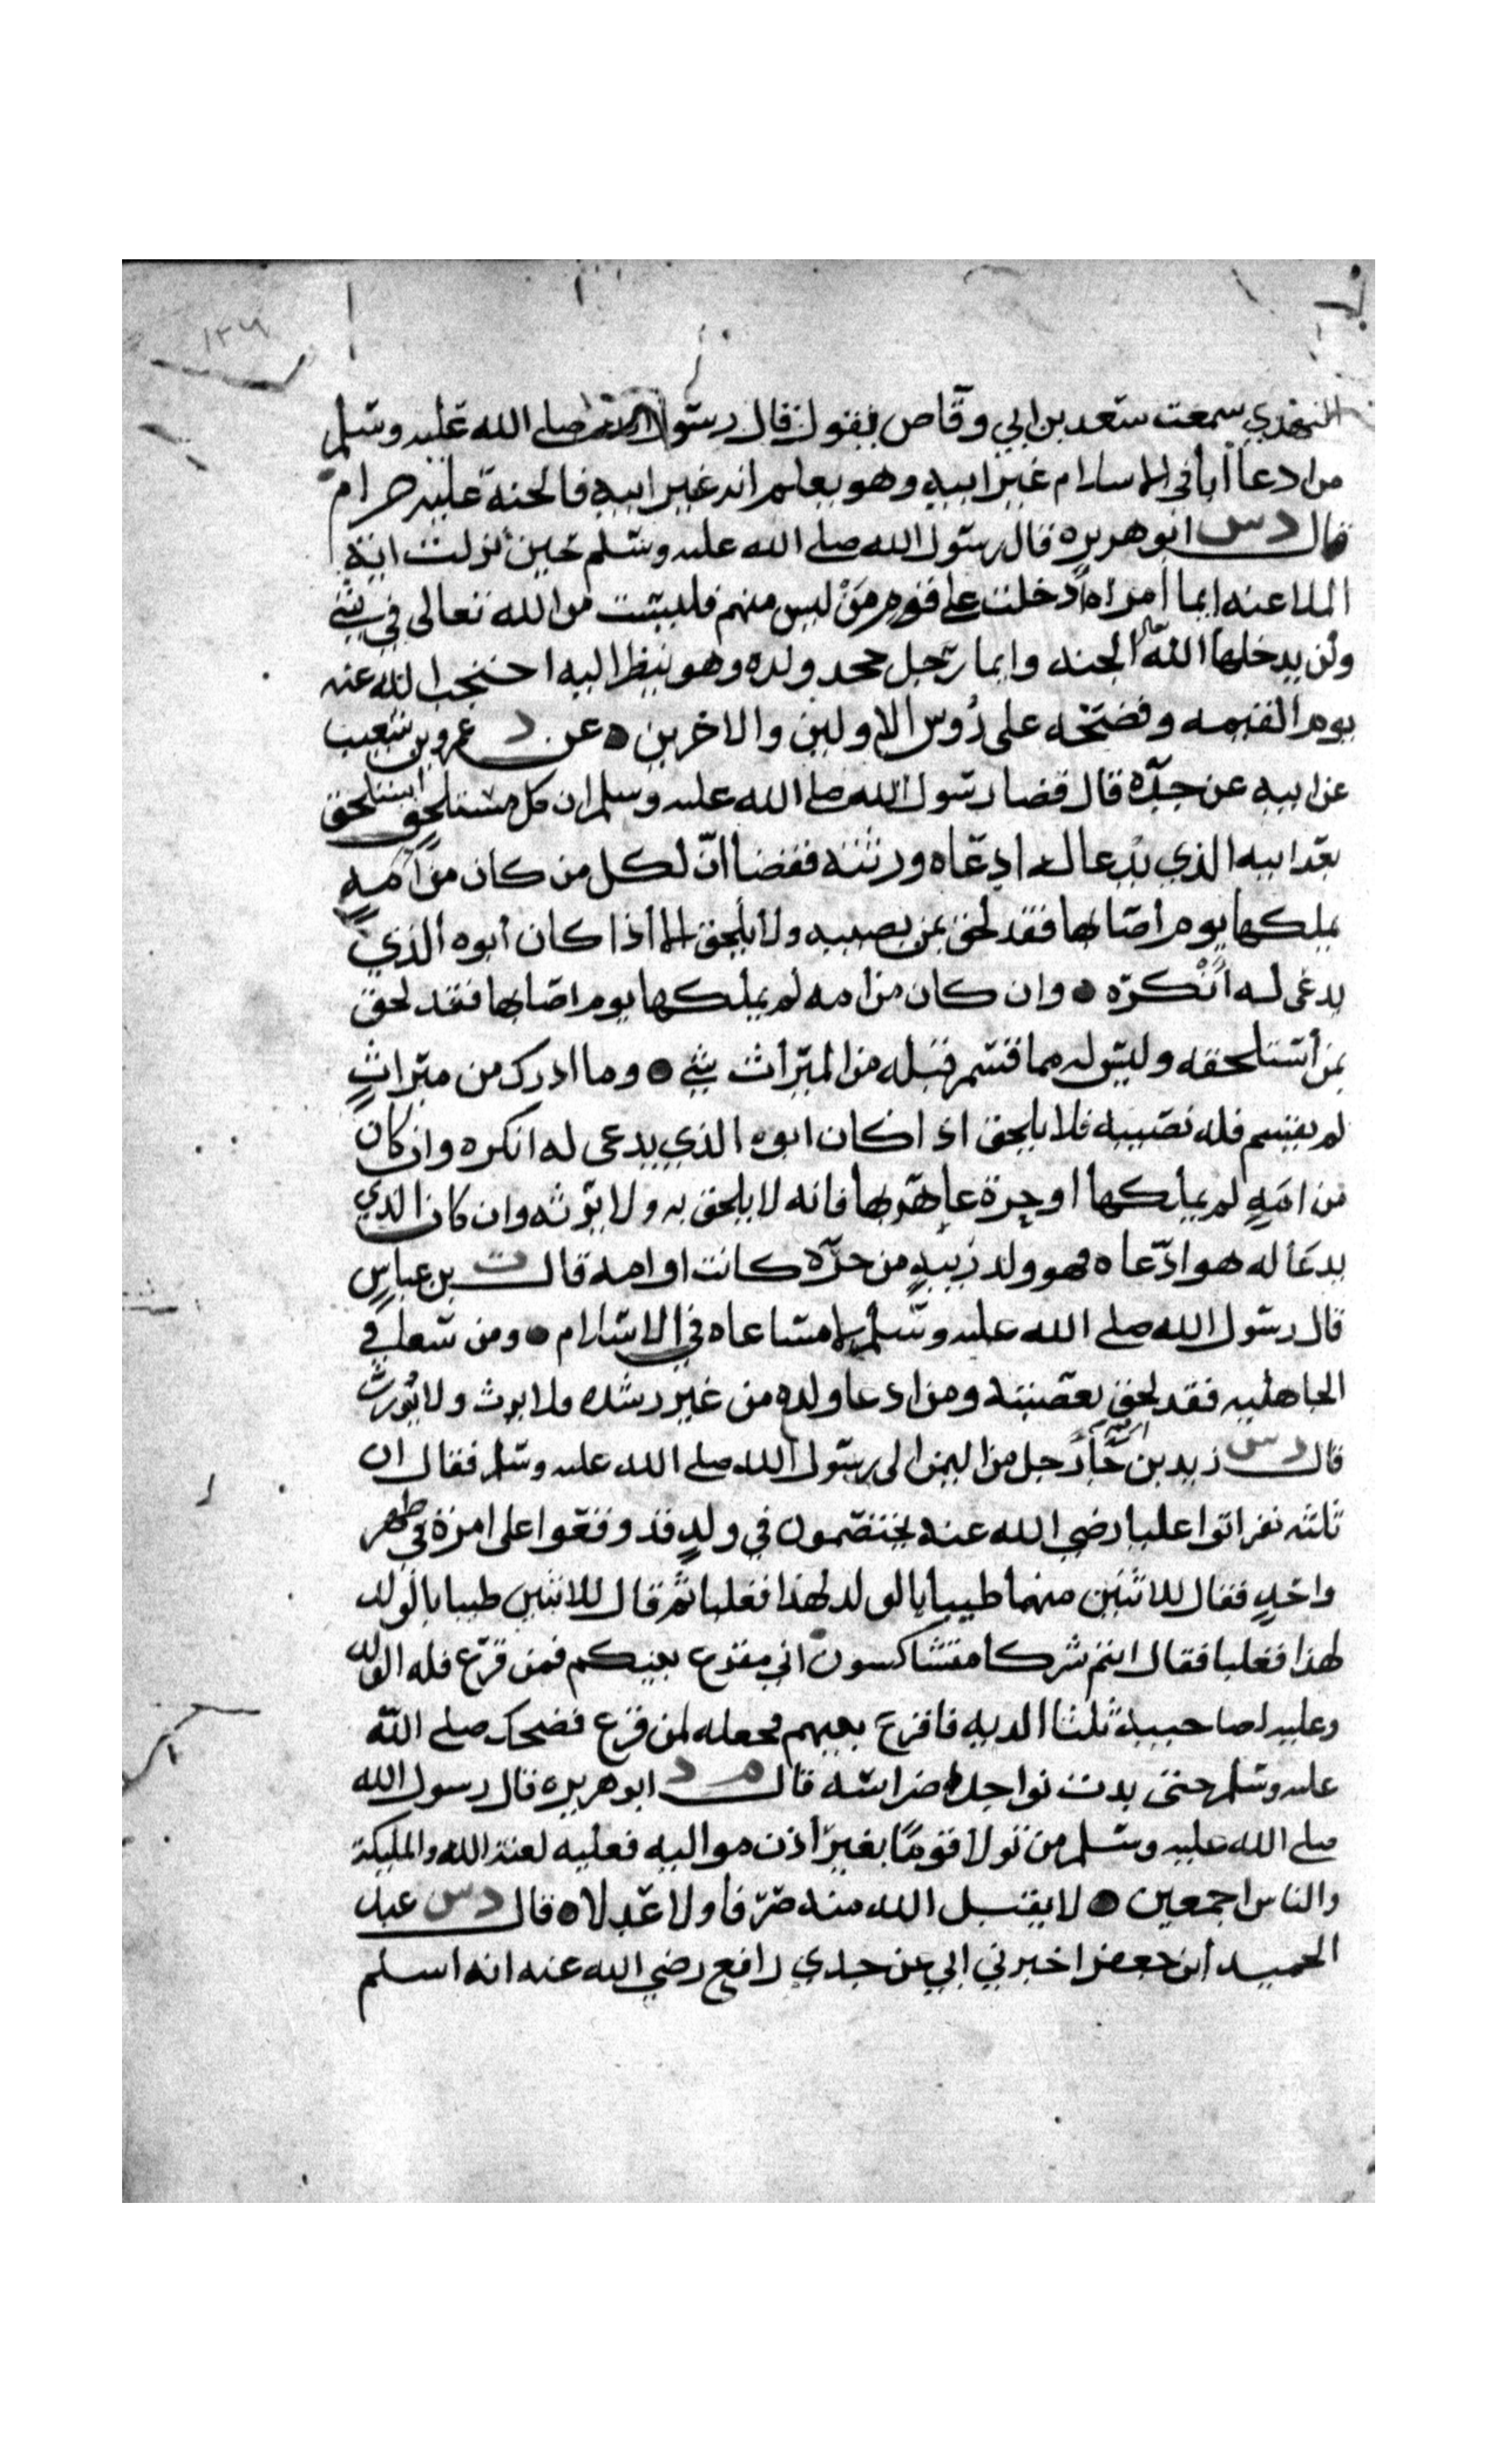 ١٢٦
النهدي سمعت سعد بن ابي وقاص يقول قال رسول الله صلى الله عليه وسلم
من ادعا أبا في الاسلام غير ابيه وهو يعلم انه غير ابيه فالجنة عليه حرام
قال د س ابو هريره قال رسول الله صلى الله عليه وسلم حين نزلت اية
الملاعنه ايما امراه دخلت على قوم من ليس منهم فليست من الله تعالى في شي
ولن يدخلها الله الجنه وايما رجل جحد ولده وهو ينظر اليه احتجب الله عنه
يوم القيمه وفضحه على رؤس الاولين والاخرين عن د عمرو بن شعيب
عن ابيه عن جده قال قضا رسول الله صلى الله عليه وسلم ان كل مستلحق استلحق
بعد ابيه الذي يدعا له ادعاه ورثته فقضا ان لكل من كان من امه
يملكها يوم اصابها فقد لحق بمن يصيبه ولا يلحق الا اذا كان أبوه الذي
يدعى له انكره وان كان من امه لم يملكها يوم اصابها فقد لحق
بمن استلحقه وليس له مما قسم قبله من الميراث شي وما ادرك من ميراث
لم يقسم فله نصيبه فلا يلحق اذا كان ابوه الذي يدعى له انكره وان كان
من امه لم يملكها أو حرة عاهر بها فانه لا يلحق به ولا يورثه وان كان الذي
يدعا له هو ادعاه فهو ولد زنية من حره كانت او امه قال ت بن عباس
قال رسول الله صلى الله عليه وسلم لا مساعاه في الاسلام ومن سعا في
الجاهليه فقد لحق بعصبته ومن ادعا ولده من غير رشده فلا يرث ولا يورث
قال د س زيد بن جا رجل من اليمن الى رسول الله صلى الله عليه وسلم فقال ان
ثلثه نفر اتوا عليا رضي الله عنه يختصمون في ولد قد وقعوا على امرة في طهر
واحد فقال للاثنين منهما طيبا بالولد لهذا فغلبا ثم قال للاثنين طيبا بالولد
لهذا فغلبا فقال انتم شركا متشاكسون اني مقرع بينكم فمن قرع فله الولد
وعليه لصاحبيه ثلثا الديه فاقرع بينهم فجعله لمن قرع فضحك صلى الله
عليه وسلم حتى بدت نواجذه اضراسه قال م د ابو هريره قال رسول الله
صلى الله عليه وسلم من تولا قوما بغير أذن مواليه فعليه لعنة الله والمليكة
والناس اجمعين لا يقبل الله منه صرفا ولا عدلا قال د س عبد
الحميد ابن جعفر اخبرني ابي عن جدي رافع رضي الله عنه انه اسلم